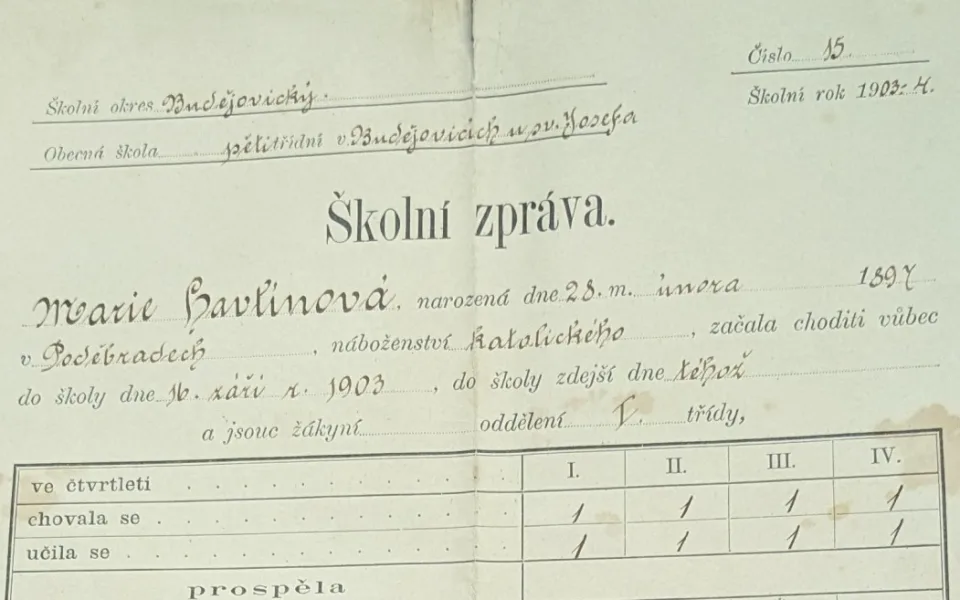 Číslo 15.
Školní okres Budějovický.
Školní rok 1903-4.
Obecná škola pětitřídní v Budějovicích u sv. Josefa
Školní zpráva.
Marie Havlínová, narozená dne 28. m. února 1897
v Poděbradech, náboženství katolického, začala choditi vůbec
do školy dne 16. září r. 1903, do školy zdejší dne téhož
a jsouc žákyní oddělení I. třídy,
ve čtvrtletí I. II. III. IV.
chovala se 1 1 1 1
učila se 1 1 1 1
prospěla